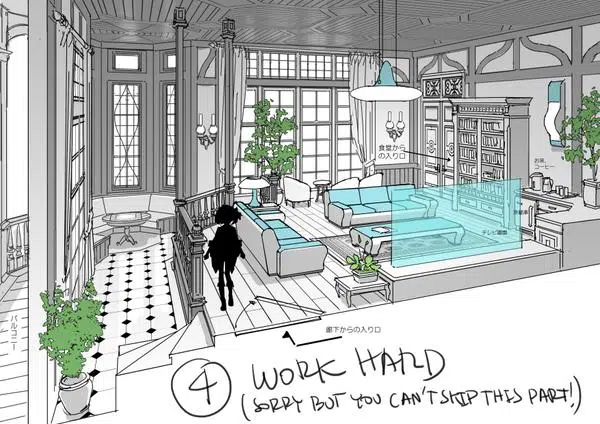 食堂から
の入り口
お茶、
コーヒー
テレビ画面
バルコニー
廊下からの入り口
④ WORK HARD
(SORRY BUT YOU CAN'T SKIP THIS PART!)